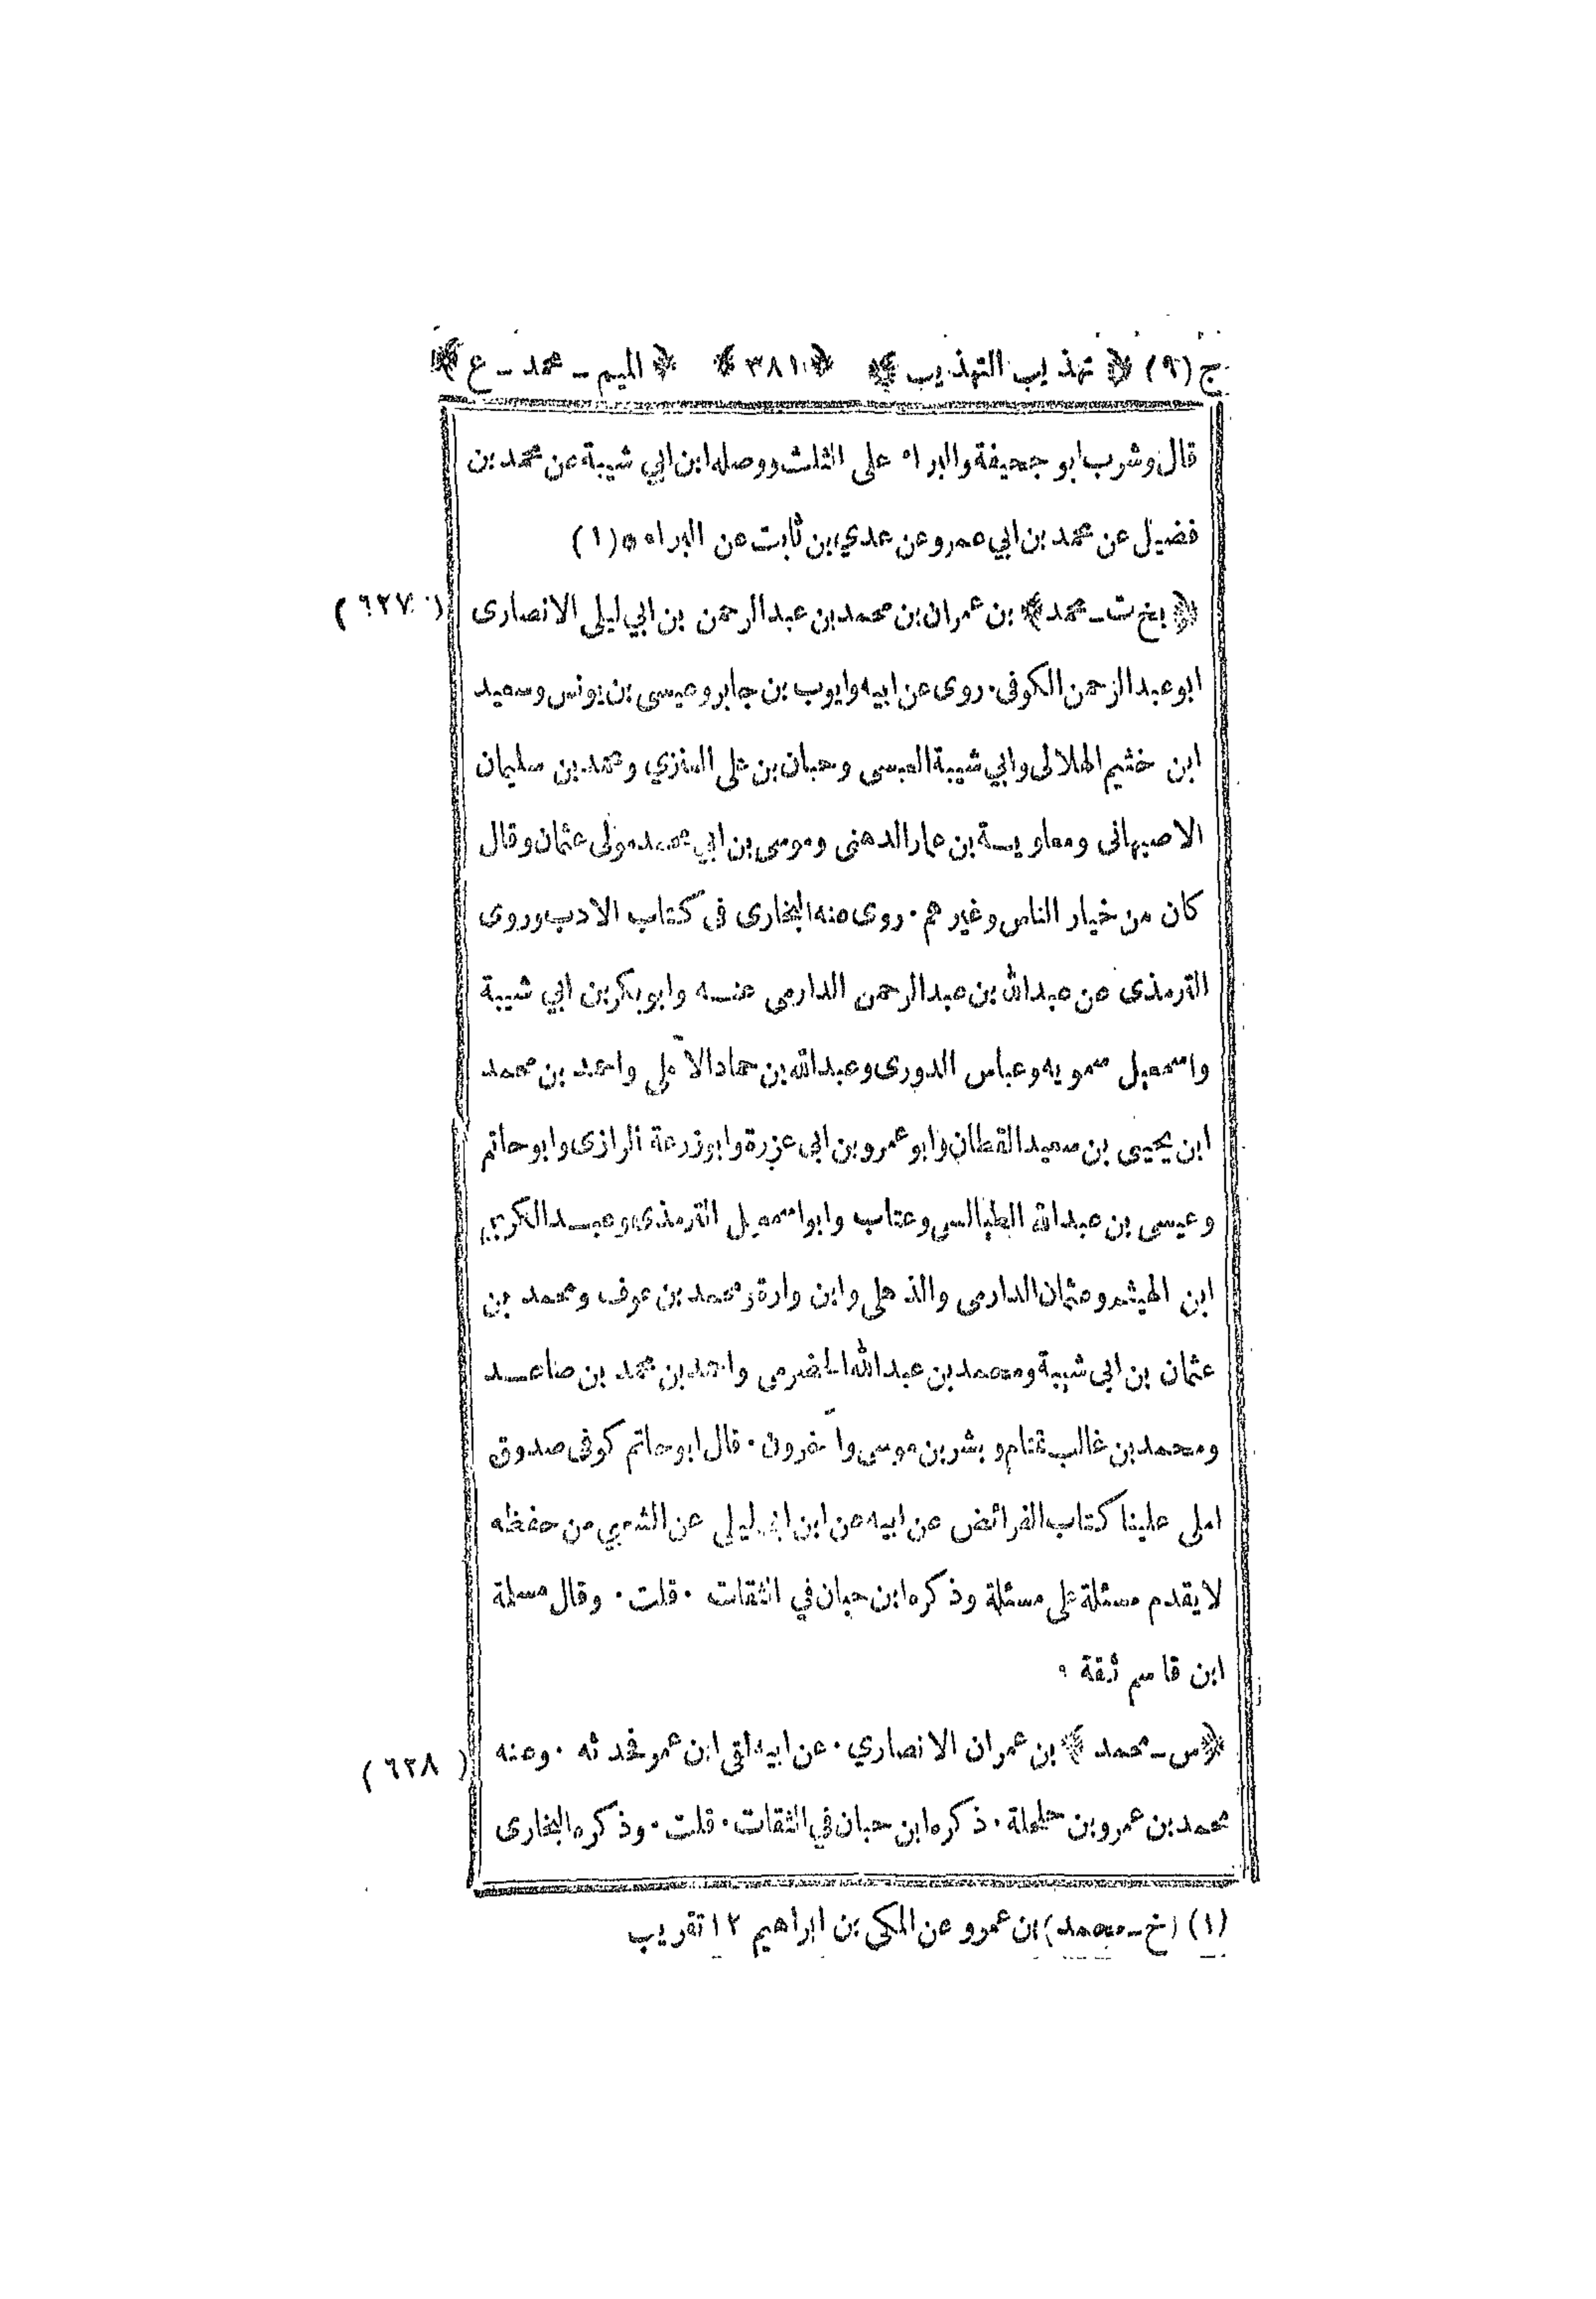 ج (٩) ﴿ تهذيب التهذيب ﴾ ﴿ ٣٨١ ﴾ ﴿ الميم ـ محمد ـ ع ﴾
قال وشرب ابو جحيفة والبراء على الثلث ووصله ابن ابي شيبة عن محمد بن
فضيل عن محمد بن ابي عمرو عن عدي بن ثابت عن البراء ٠ (١)
﴿ بخ ت ـ محمد ﴾ بن عمران بن محمد بن عبد الرحمن بن ابي ليلى الانصارى (٦٢٧)
ابو عبد الرحمن الكوفى ٠ روى عن ابيه وايوب بن جابر وعيسى بن يونس وسعيد
ابن خثيم الهلالى وابي شيبة العبسى وحبان بن على العنزي ومحمد بن سليمان
الاصبهانى ومعاويـة بن عمار الدهنى وموسى بن ابي محمد مولى عثمان وقال
كان من خيار الناس وغيرهم ٠ روى عنه البخارى فى كتاب الادب وروى
الترمذى عن عبد الله بن عبد الرحمن الدارمى عنـه وابو بكر بن ابي شيبة
واسمعيل سمويه وعباس الدورى وعبد الله بن حماد الآملى واحمد بن محمد
ابن يحيى بن سعيد القطان وابو عمرو بن ابى عزرة وابو زرعة الرازى وابو حاتم
وعيسى بن عبد الله الطيالسى وعتاب وابو اسمعيل الترمذى وعبـد الكريم
ابن الهيثم وعثمان الدارمى والذهلى وابن وارة ومحمد بن عوف ومحمد بن
عثمان بن ابى شيبة ومحمد بن عبد الله الحضرمى واحمد بن محمد بن صاعـد
ومحمد بن غالب تمتام وبشر بن موسى وآخرون ٠ قال ابو حاتم كوفى صدوق
املى علينا كتاب الفرائض عن ابيه عن ابن ابي ليلى عن الشعبي من حفظه
لا يقدم مسئلة على مسئلة وذكره ابن حبان في الثقات ٠ قلت ٠ وقال مسلمة
ابن قاسم ثقة ٠
﴿ س ـ محمد ﴾ بن عمران الانصاري ٠ عن ابيه لقى ابن عمر فحدثه ٠ وعنه (٦٢٨)
محمد بن عمرو بن حلحلة ٠ ذكره ابن حبان في الثقات ٠ قلت ٠ وذكره البخارى
(١) (خ ـ محمد) بن عمرو عن المكى بن ابراهيم ١٢ تقريب